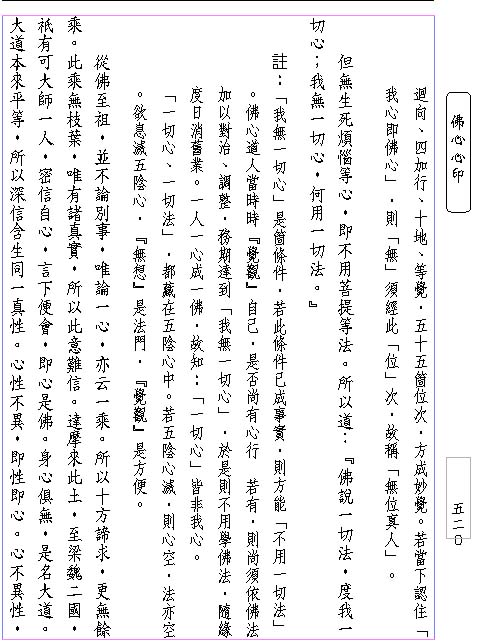 佛心心印
五二〇
迴向、四加行、十地、等覺，五十五箇位次，方成妙覺。若當下認住「
我心即佛心」，則「無」須經此「位」次，故稱「無位真人」。
但無生死煩惱等心，即不用菩提等法。所以道：『佛說一切法，度我一
切心；我無一切心，何用一切法。』
註：「我無一切心」是箇條件，若此條件已成事實，則方能「不用一切法」
。佛心道人當時時『覺觀』自己，是否尚有心行　若有，則尚須依佛法
加以對治、調整，務期達到「我無一切心」，於是則不用學佛法，隨緣
度日消舊業。一人一心成一佛，故知：「一切心」皆非我心。
「一切心、一切法」，都藏在五陰心中。若五陰心滅，則心空，法亦空
。欲息滅五陰心，『無想』是法門，『覺觀』是方便。
從佛至祖，並不論別事，唯論一心，亦云一乘。所以十方諦求，更無餘
乘。此乘無枝葉，唯有諸真實，所以此意難信。達摩來此土，至梁魏二國，
祇有可大師一人，密信自心，言下便會，即心是佛。身心俱無，是名大道。
大道本來平等，所以深信含生同一真性。心性不異，即性即心。心不異性，